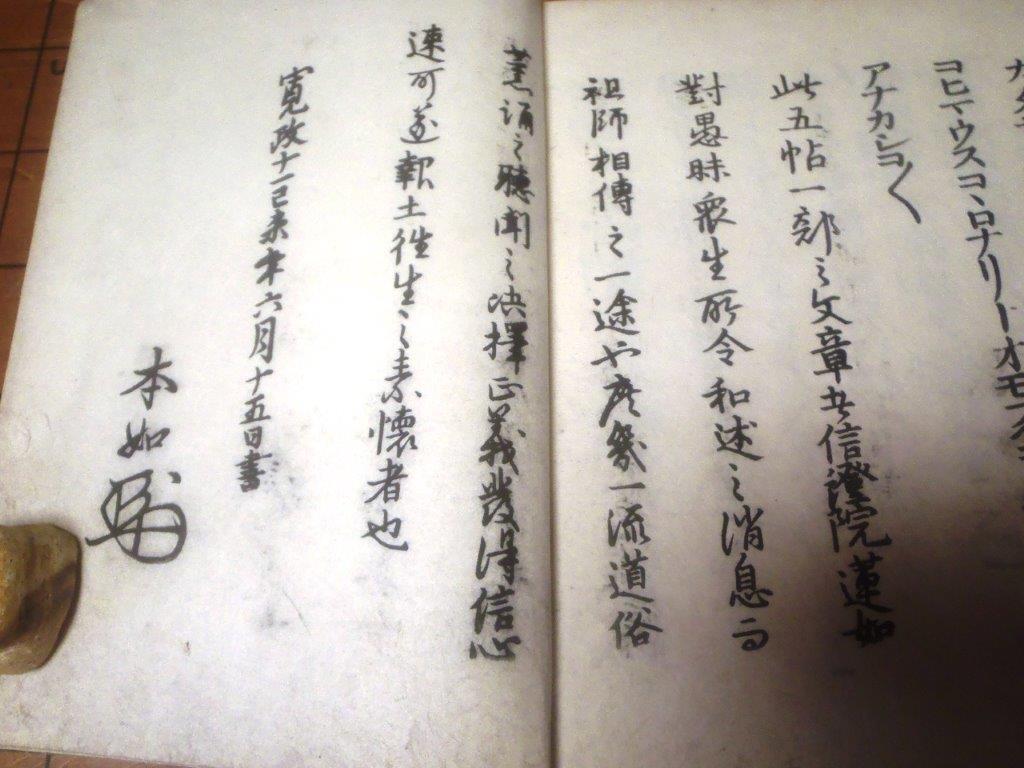 コヒマウスコヽロナリーオモフ
アナカシコ〱
此五帖一部之文章者信證院蓮如
對愚昧衆生所令和述之消息而
祖師相傳之一途也庶幾一流道俗
諷誦之聴聞之决擇正義發得信心
速可遂報土往生之素懐者也
寛政十一己未年六月十五日書
本如